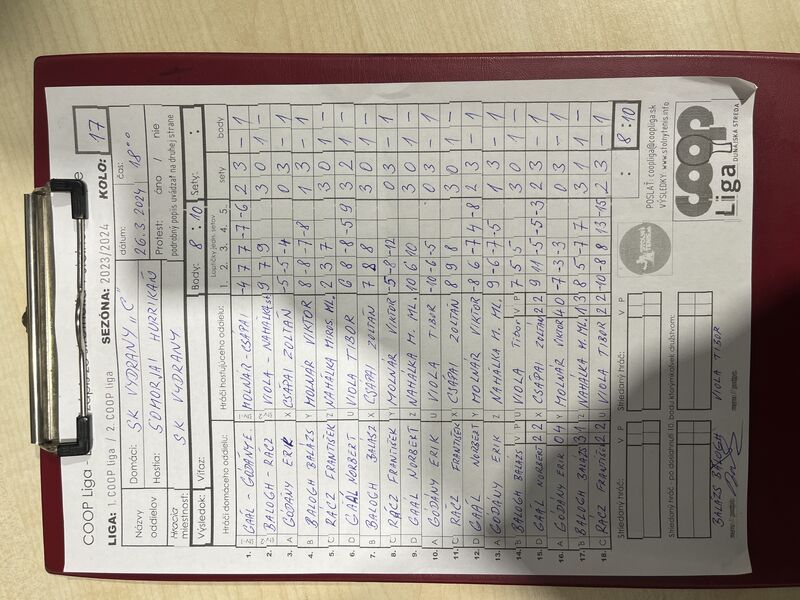 COOP Liga -
LIGA: 1. COOP liga / 2. COOP liga SEZÓNA: 2023/2024 KOLO: 17
Názvy oddielov
Domáci: SK VYDRANY "C"
Hostia: ŠOMORJAI HURRIKÁN
dátum: 26.3 2024
čas: 18⁰⁰
Hracia miestnosť: SK VYDRANY
Protest: áno / nie
podrobný popis uvádzať na druhej strane
Výsledok: Víťaz: Body: 8 : 10 Sety: :
Hráči domáceho oddielu: Hráči hosťujúceho oddielu: 1. 2. 3. 4. 5. sety body
1. GAÁL - GODÁNYE MOLNÁR - CSÁPAI -4 7 7 -7 -6 2 3 - 1
2. BALOGH - RÁCZ VIOLA - NAHALKA 9 7 9 3 0 1 -
3. A GODÁNY ERIK X CSÁPAI ZOLTÁN -5 -5 -4 0 3 - 1
4. B BALOGH BALÁZS Y MOLNÁR VIKTOR 8 -8 -7 -8 1 3 - 1
5. C RÁCZ FRANTIŠEK Z NAHALKA MIROS. ML. 2 3 7 3 0 1 -
6. D GAÁL NORBERT U VIOLA TIBOR 6 8 -8 -5 9 3 2 1
7. B BALOGH BALÁSZ X CSÁPAI ZOLTÁN 7 8 8 3 0 1 -
8. C RÁCZ FRANTIŠEK Y MOLNÁR VIKTOR -5 -8 -12 0 3 - 1
9. D GAÁL NORBERT Z NAHALKA M. ML. 10 6 10 3 0 1 -
10. A GODÁNY ERIK U VIOLA TIBOR -10 -6 -5 0 3 - 1
11. C RÁCZ FRANTIŠEK X CSÁPAI ZOLTÁN 8 9 8 3 0 1 -
12. D GAÁL NORBERT Y MOLNÁR VIKTOR -8 6 -7 4 -8 2 3 - 1
13. A GODÁNY ERIK Z NAHALKA M. ML. 9 -6 -7 -5 1 3 - 1
14. B BALOGH BALÁZS V P U VIOLA TIBOR V P 7 5 5 3 0 1 -
15. D GAÁL NORBERT 2 2 X CSÁPAI ZOLTÁN 2 2 9 11 -5 -5 -3 2 3 - 1
16. A GODÁNY ERIK 0 4 Y MOLNÁR VIKTOR 4 0 -7 -3 -3 0 3 - 1
17. B BALOGH BALÁZS 3 1 Z NAHALKA M. ML. 1 3 8 5 -7 7 3 1 1 -
18. C RÁCZ FRANTIŠEK 2 2 U VIOLA TIBOR 2 2 -10 -8 8 13 -15 2 3 - 1
: 8 : 10
Striedaný hráč: V P Striedaný hráč: V P
Striedaný hráč - po dosiahnutí 10. bodu ktorýmkoľvek družstvom:
BALÁZS BALOGH VIOLA TIBOR
meno / podpis meno / podpis
POSLAŤ: coopliga@coopliga.sk
VÝSLEDKY: www.stolnytenis.info
COOP
Liga DUNAJSKÁ STREDA